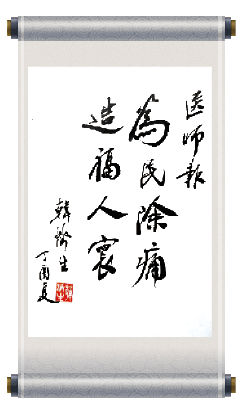 医师報
為民除痛
造福人寰
韓济生
丁酉夏